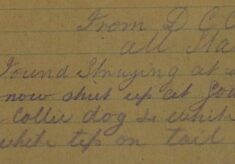 From D C C
all Sta
Found Straying at
now shut up at
Collie dog is white
white tip on tail